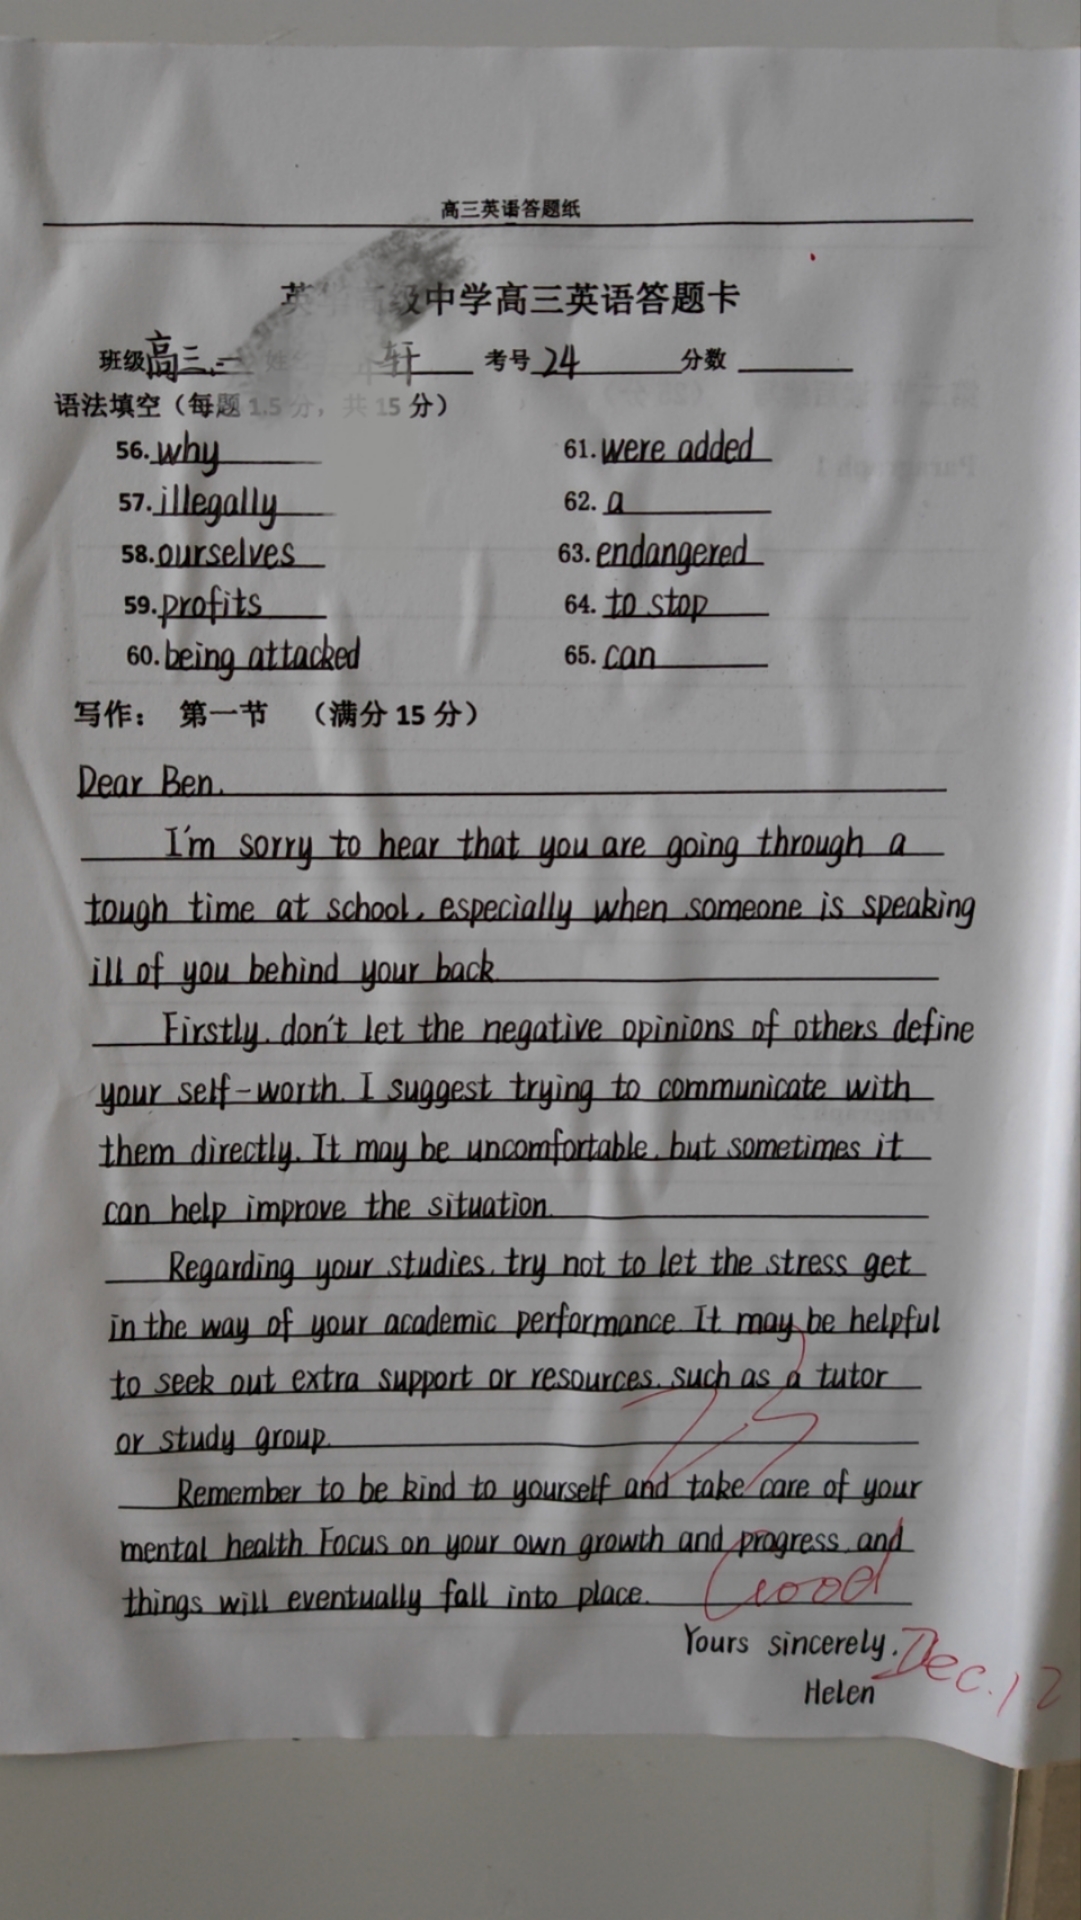 高三英语答题纸
英 级中学高三英语答题卡
班级 高三.一 姓名 轩 考号 24 分数
语法填空（每题 1.5 分，共 15 分）
56. why 61. were added
57. illegally 62. a
58. ourselves 63. endangered
59. profits 64. to stop
60. being attacked 65. can
写作： 第一节 （满分 15 分）
Dear Ben,
I'm sorry to hear that you are going through a
tough time at school, especially when someone is speaking
ill of you behind your back.
Firstly, don't let the negative opinions of others define
your self-worth. I suggest trying to communicate with
them directly. It may be uncomfortable, but sometimes it
can help improve the situation.
Regarding your studies, try not to let the stress get
in the way of your academic performance. It may be helpful
to seek out extra support or resources, such as a tutor
or study group.
Remember to be kind to yourself and take care of your
mental health. Focus on your own growth and progress, and
things will eventually fall into place.
Good
Yours sincerely,
Dec.12
Helen